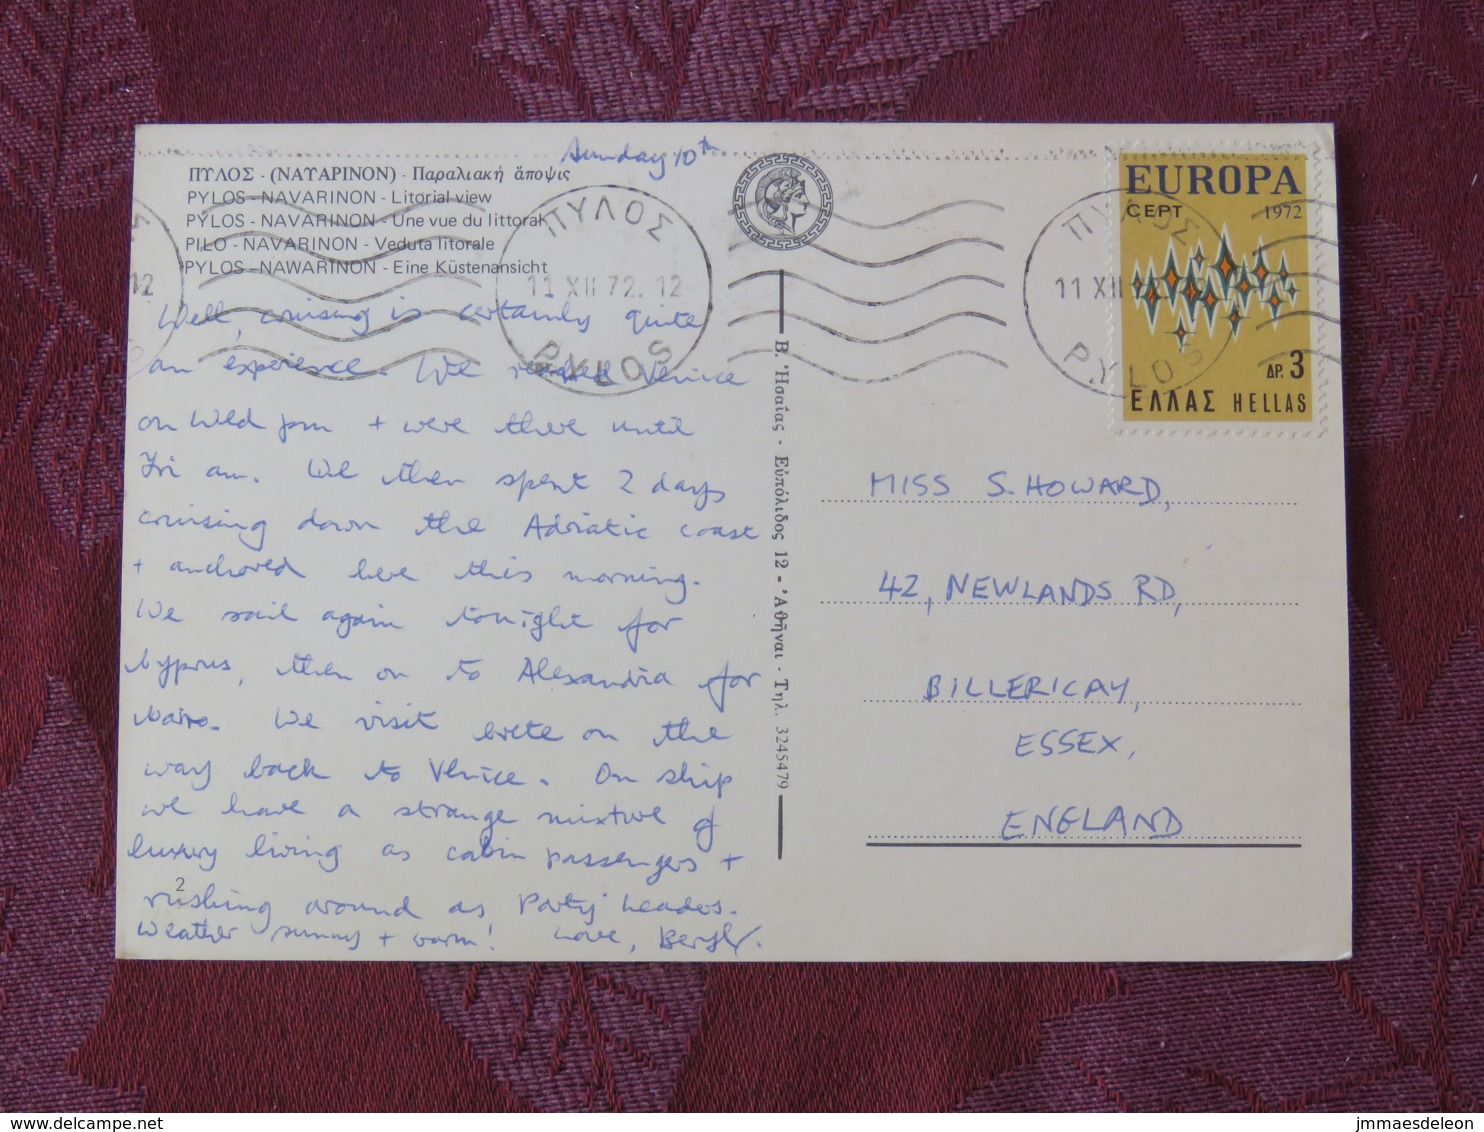 Sunday 10th
ΠΥΛΟΣ - (ΝΑΥΑΡΙΝΟΝ) - Παραλιακή ἄποψις
PYLOS - NAVARINON - Litorial view
PYLOS - NAVARINON - Une vue du littoral
PILO - NAVARINON - Veduta litorale
PYLOS - NAWARINON - Eine Küstenansicht
Well, cruising is certainly quite
an experience. We reached Venice
on Wed pm + were there until
Fri am. We then spent 2 days
cruising down the Adriatic coast
+ anchored here this morning.
We sail again tonight for
Cyprus, then on to Alexandria for
Cairo. We visit Crete on the
way back to Venice. On ship
we have a strange mixture of
luxury living as cabin passengers +
rushing around as Party Leaders.
Weather sunny + warm! Love, Beryl.
2
Β. Ἠσαΐας - Εὐπόλιδος 12 - Ἀθῆναι - Τηλ. 3245479
ΠΥΛΟΣ
11 XII 72. 12
PYLOS
12
ΠΥΛΟΣ
11 XII
PYLOS
EUROPA
CEPT 1972
ΔΡ. 3
ΕΛΛΑΣ HELLAS
MISS S. HOWARD,
42, NEWLANDS RD,
BILLERICAY,
ESSEX,
ENGLAND
delcampe.net
jmmaesdeleon